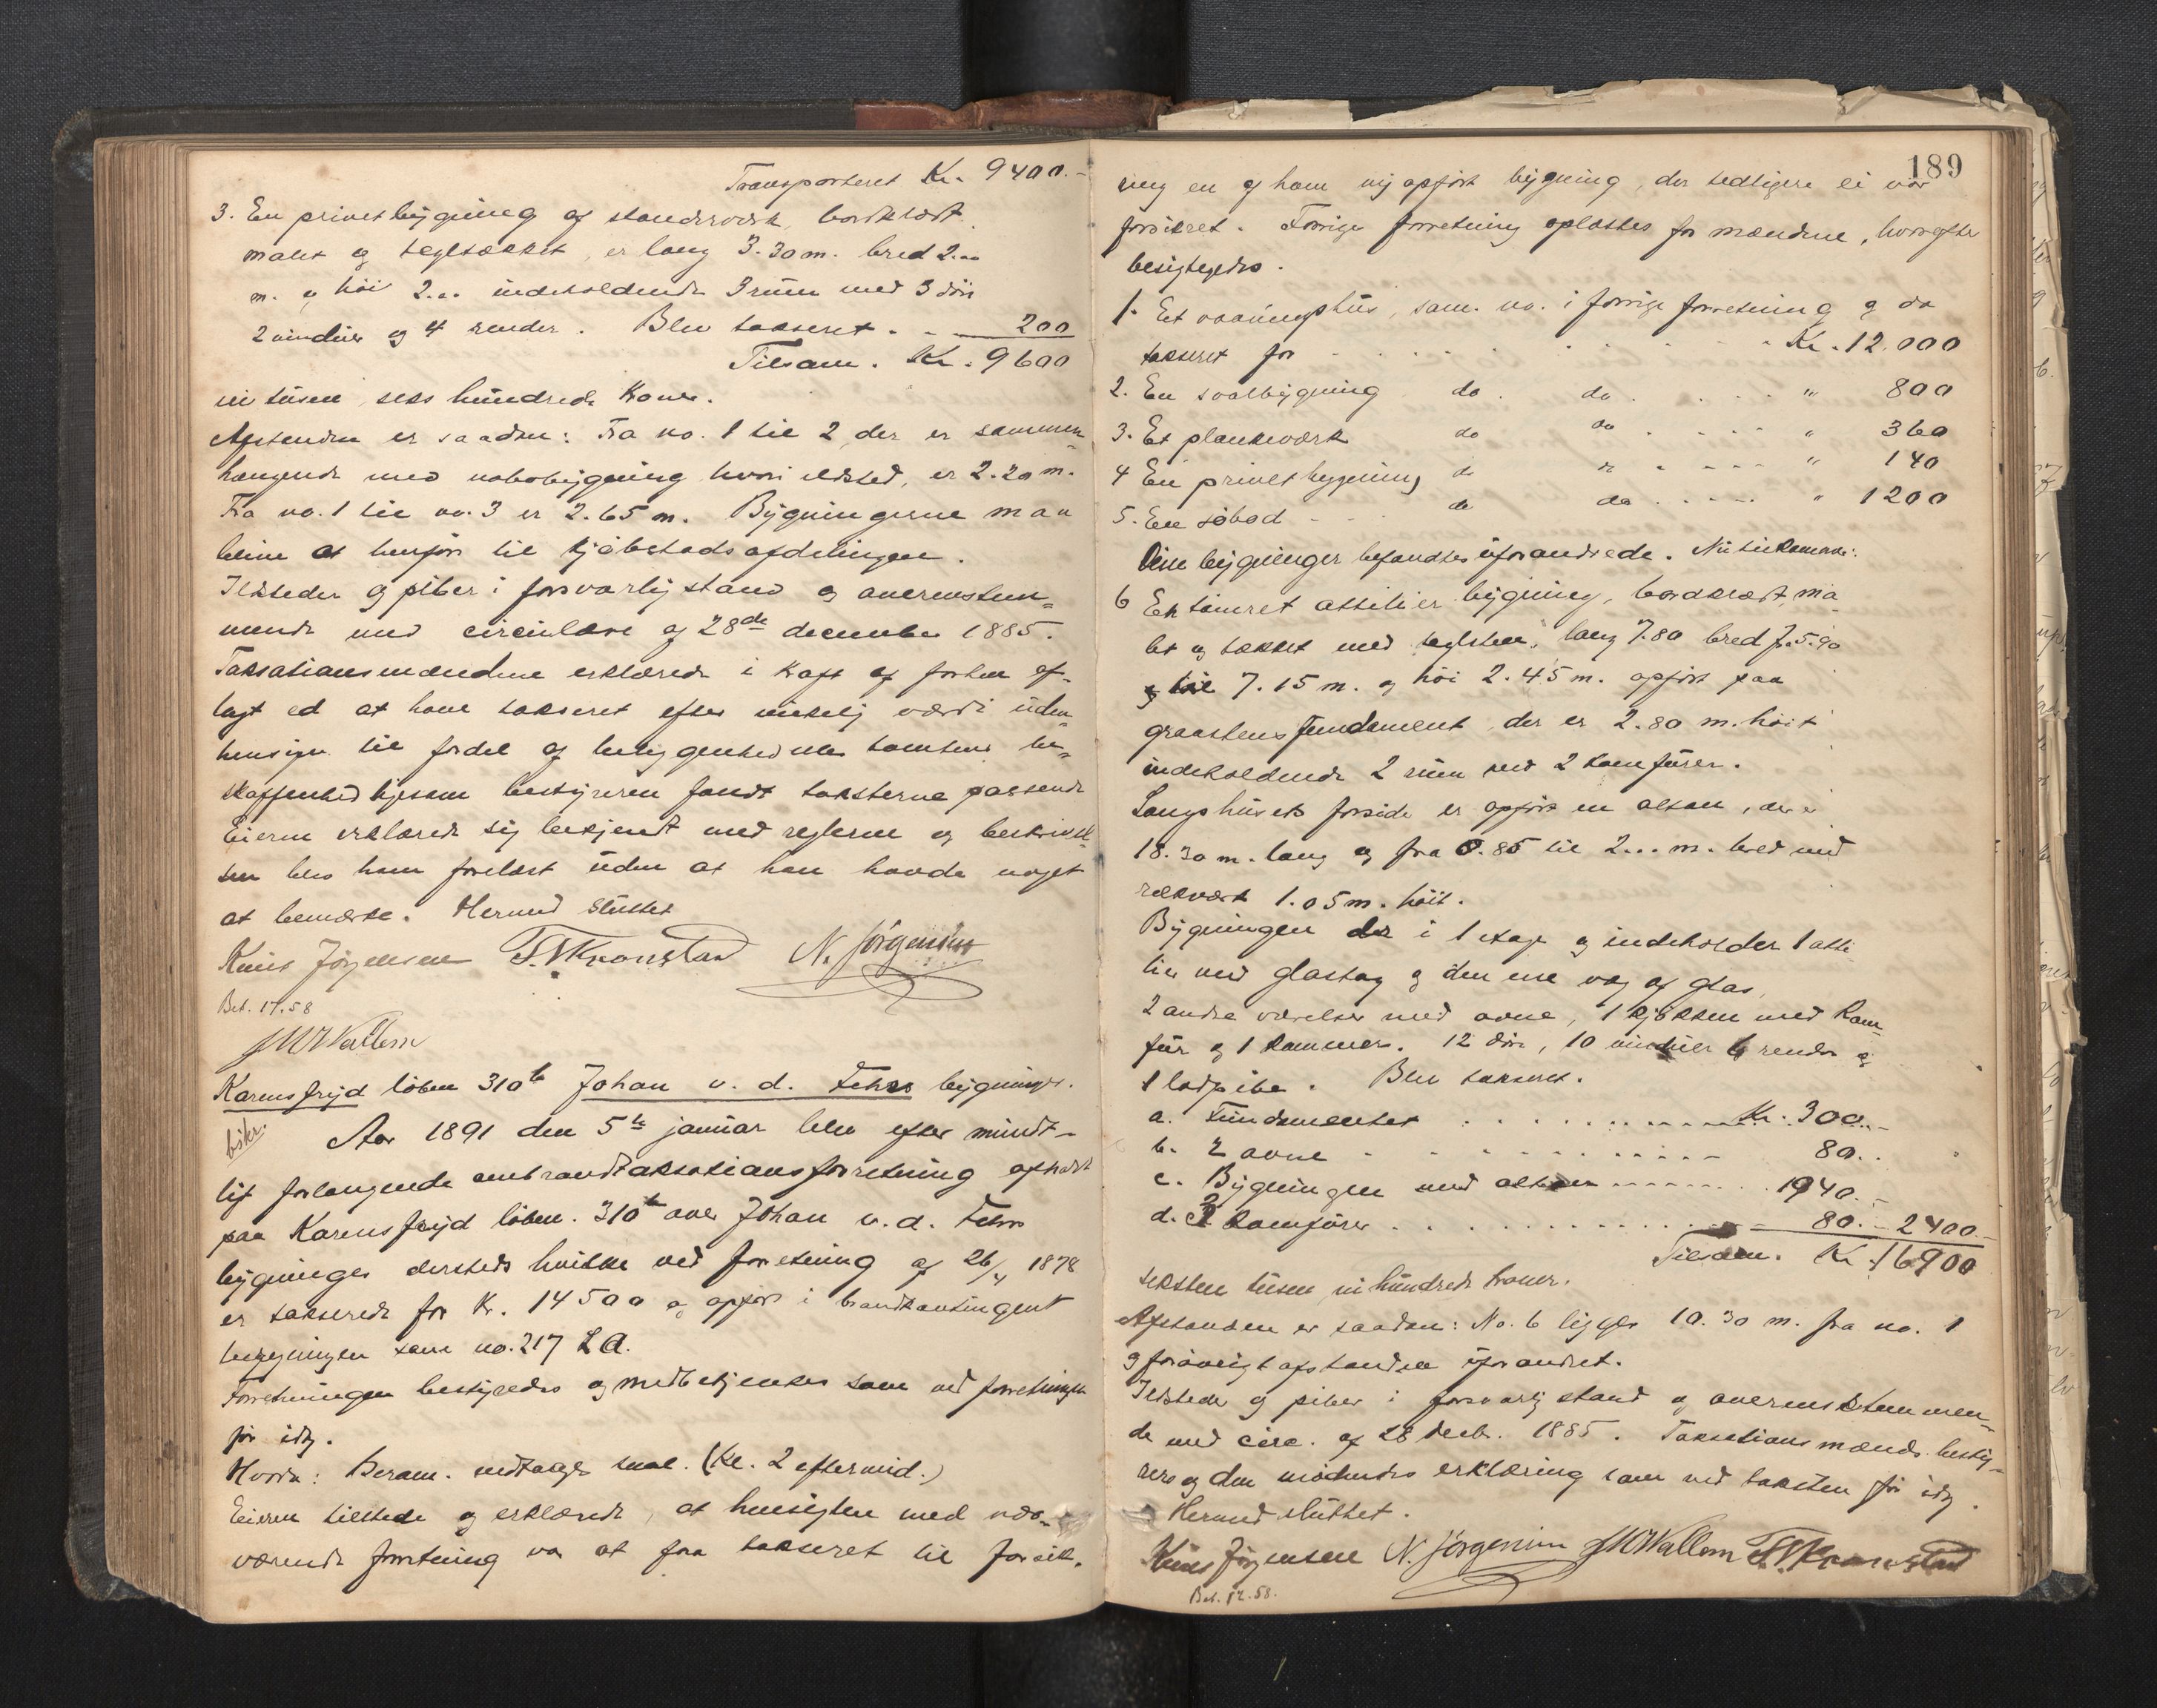 Transporteret Kr. 9400.-
3. En privetbygning af standerværk, bordklædt
malet og tegltækket, er lang 3.30 m. bred 2...
m. og høi 2... indeholdende 3 rum med 3 døre
2 vinduer og 4 render. Blev takseret . - 200
Tilsam. Kr. 9600
ni tusen, seks hundrede kroner.
Afstanden er saadan: Fra no. 1 til 2, der er sammen-
hængende med nabobygning hvori ildsted, er 2.20 m.
Fra no. 1 til no. 3 er 2.65 m. Bygningerne maa
blive at henføre til kjøbstadsafdelingen.
Ildsteder og piber i forsvarlig stand og overensstem-
mende med circulære af 28de december 1885.
Taksationsmændene erklærede i kraft af forhen af-
lagt ed at have takseret efter virkelig værdi uden
hensyn til fordel af beliggenhed eller tomtens be-
skaffenhed ligesom bestyreren fandt taksterne passende
Eieren erklærede sig bekjendt med reglerne og beskrivel-
sen blev ham forelæst uden at han havde noget
at bemærke. Hermed sluttet
Knus Jørgensen T. Kronstad N. Jørgensen
Bet. 17.58
JMWallem
Karensfryd løben 310b Johan v. d. Fehrs bygninger.
bskr.
Aar 1891 den 5te januar blev efter mundt-
lig forlangende ombrandtaksationsforretning afholdt
paa Karensfryd løben. 310b over Johan v. d. Fehrs
bygninger dersteds hvilke ved forretning af 26/4 1878
er takserede for Kr. 14500 og opført i brandkontingent
beregningen som no. 217 L A.
Forretningen bestyredes og medbetjentes som ved forretningen
før idag.
Hvorda: Beram. vedtages snal. (Kl. 2 eftermid.)
Eieren tilstede og erklærede, at hensigten med nær-
værende forretning var at faa takseret til forsik-
189
ring en af ham ny opført bygning, der tedligere ei var
forsikret. Forrige forretning oplæstes for mændene, hvorefter
besigtigedes.
1. Et vaaningshus, sam. no. i forrige forretning og da
takseret for . . . . . . Kr. 12.000
2. En svalbygning do. do. . . . " 800
3. Et plankeværk do do . . . " 360
4 En privetbygning do do . . . " 140
5. En søbod - . do do . . . " 1200
Disse bygninger befandtes uforandrede. Nu tilkommer:
6 En tømret attilier bygning, bordklædt, ma-
let og tækket med teglsten, lang 7.80 bred fr. 5.90
til 7.15 m. og høi 2.45 m. opført paa
graastens fundament, der er 2.80 m. høit
indeholdende 2 rum med 2 komfurer.
Langs husets forside er opført en altan, der er
18.30 m. lang og fra 0.85 til 2... m. bred med
rækværk 1.05 m. høit.
Bygningen der i 1 etage og indeholder 1 atti-
lier med glastag og den ene væg af glas,
2 andre værelser med ovne, 1 kjøkken med kom-
fur og 1 kammer. 12 døre, 10 vinduer 6 render og
1 ladpibe. Blev takseret.
a. Fundamentet . . . . . . Kr. 300.-
b. 2 ovne . . . . . . 80..
c. Bygningen med altan . . . . . 1940.-
d. 2 komfurer . . . . . . 80.- 2400.-
Tilsam. Kr. 16900
seksten tusen, ni hundrede kroner.
Afstanden er saadan: No. 6 ligger 10.30 m. fra no. 1
og forøvrigt afstanden uforandret.
Ildsteder og piber i forsvarlig stand og overensstemmen-
de med circ. af 28 decb. 1885. Taksationsmænds, besty-
rers og den mødendes erklæring som ved taksten før idag.
Hermed sluttet.
Knus Jørgensen N. Jørgensen JMWallem T. Kronstad
Bet. 17.58.